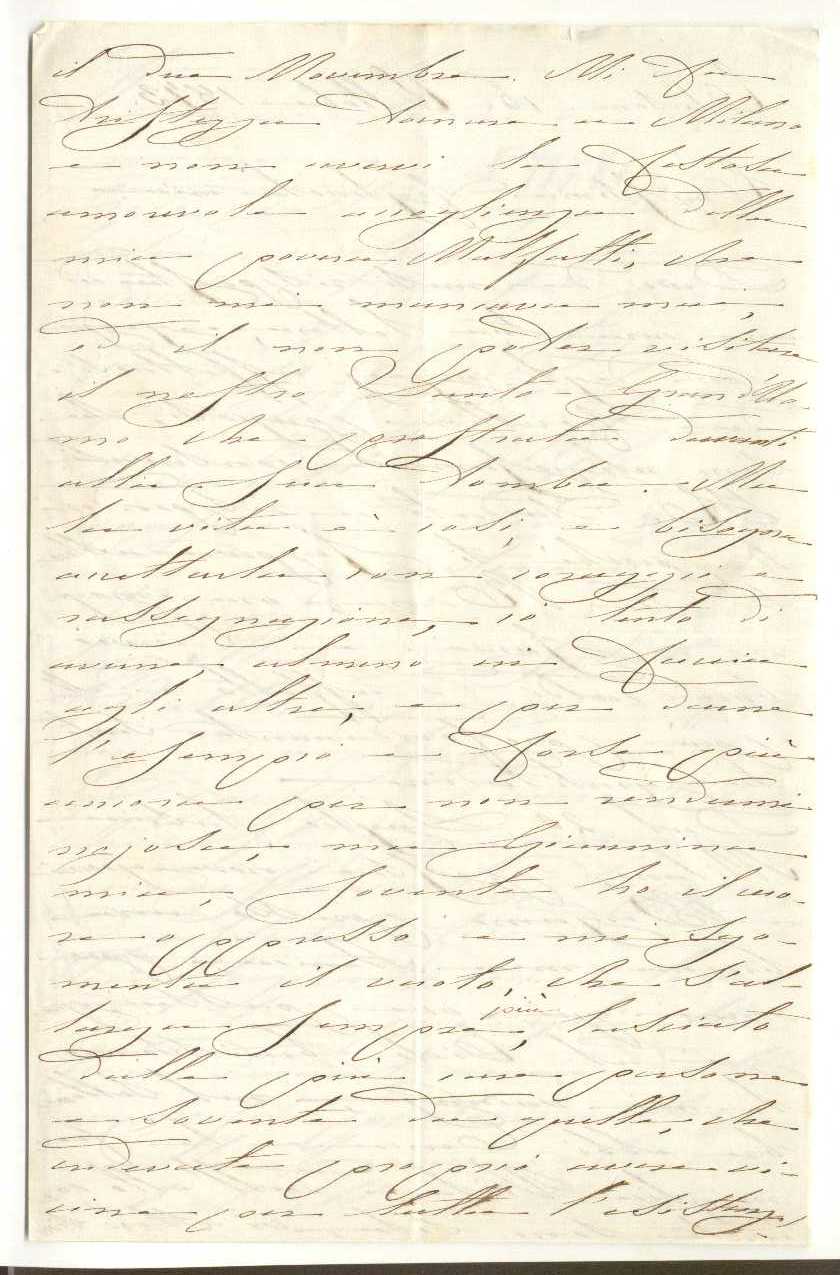 il due Novembre. Mi fa
tristezza tornare a Milano
e non avervi la festosa
amorevole accoglienza della
mia povera Malfatti, che
non mi mancava mai,
ed il non poter visitare
il nostro Santo-Grand'Uo-
mo che prostrata davanti
alla Sua tomba. Ma
la vita è così, e bisogna
accettarla con coraggio e
rassegnazione, io tento di
averne almeno in faccia
agli altri, e per darne
l'esempio e forse più
ancora per non rendermi
nojosa, ma Giannina
mia, Sovente ho il cuo-
re oppresso e mi sgo-
menta il vuoto, che s'al-
larga Sempre più, lasciato
dalle più care persone
e sovente da quelle, che
credevate proprio avere vi-
cine per tutta l'esistenz,